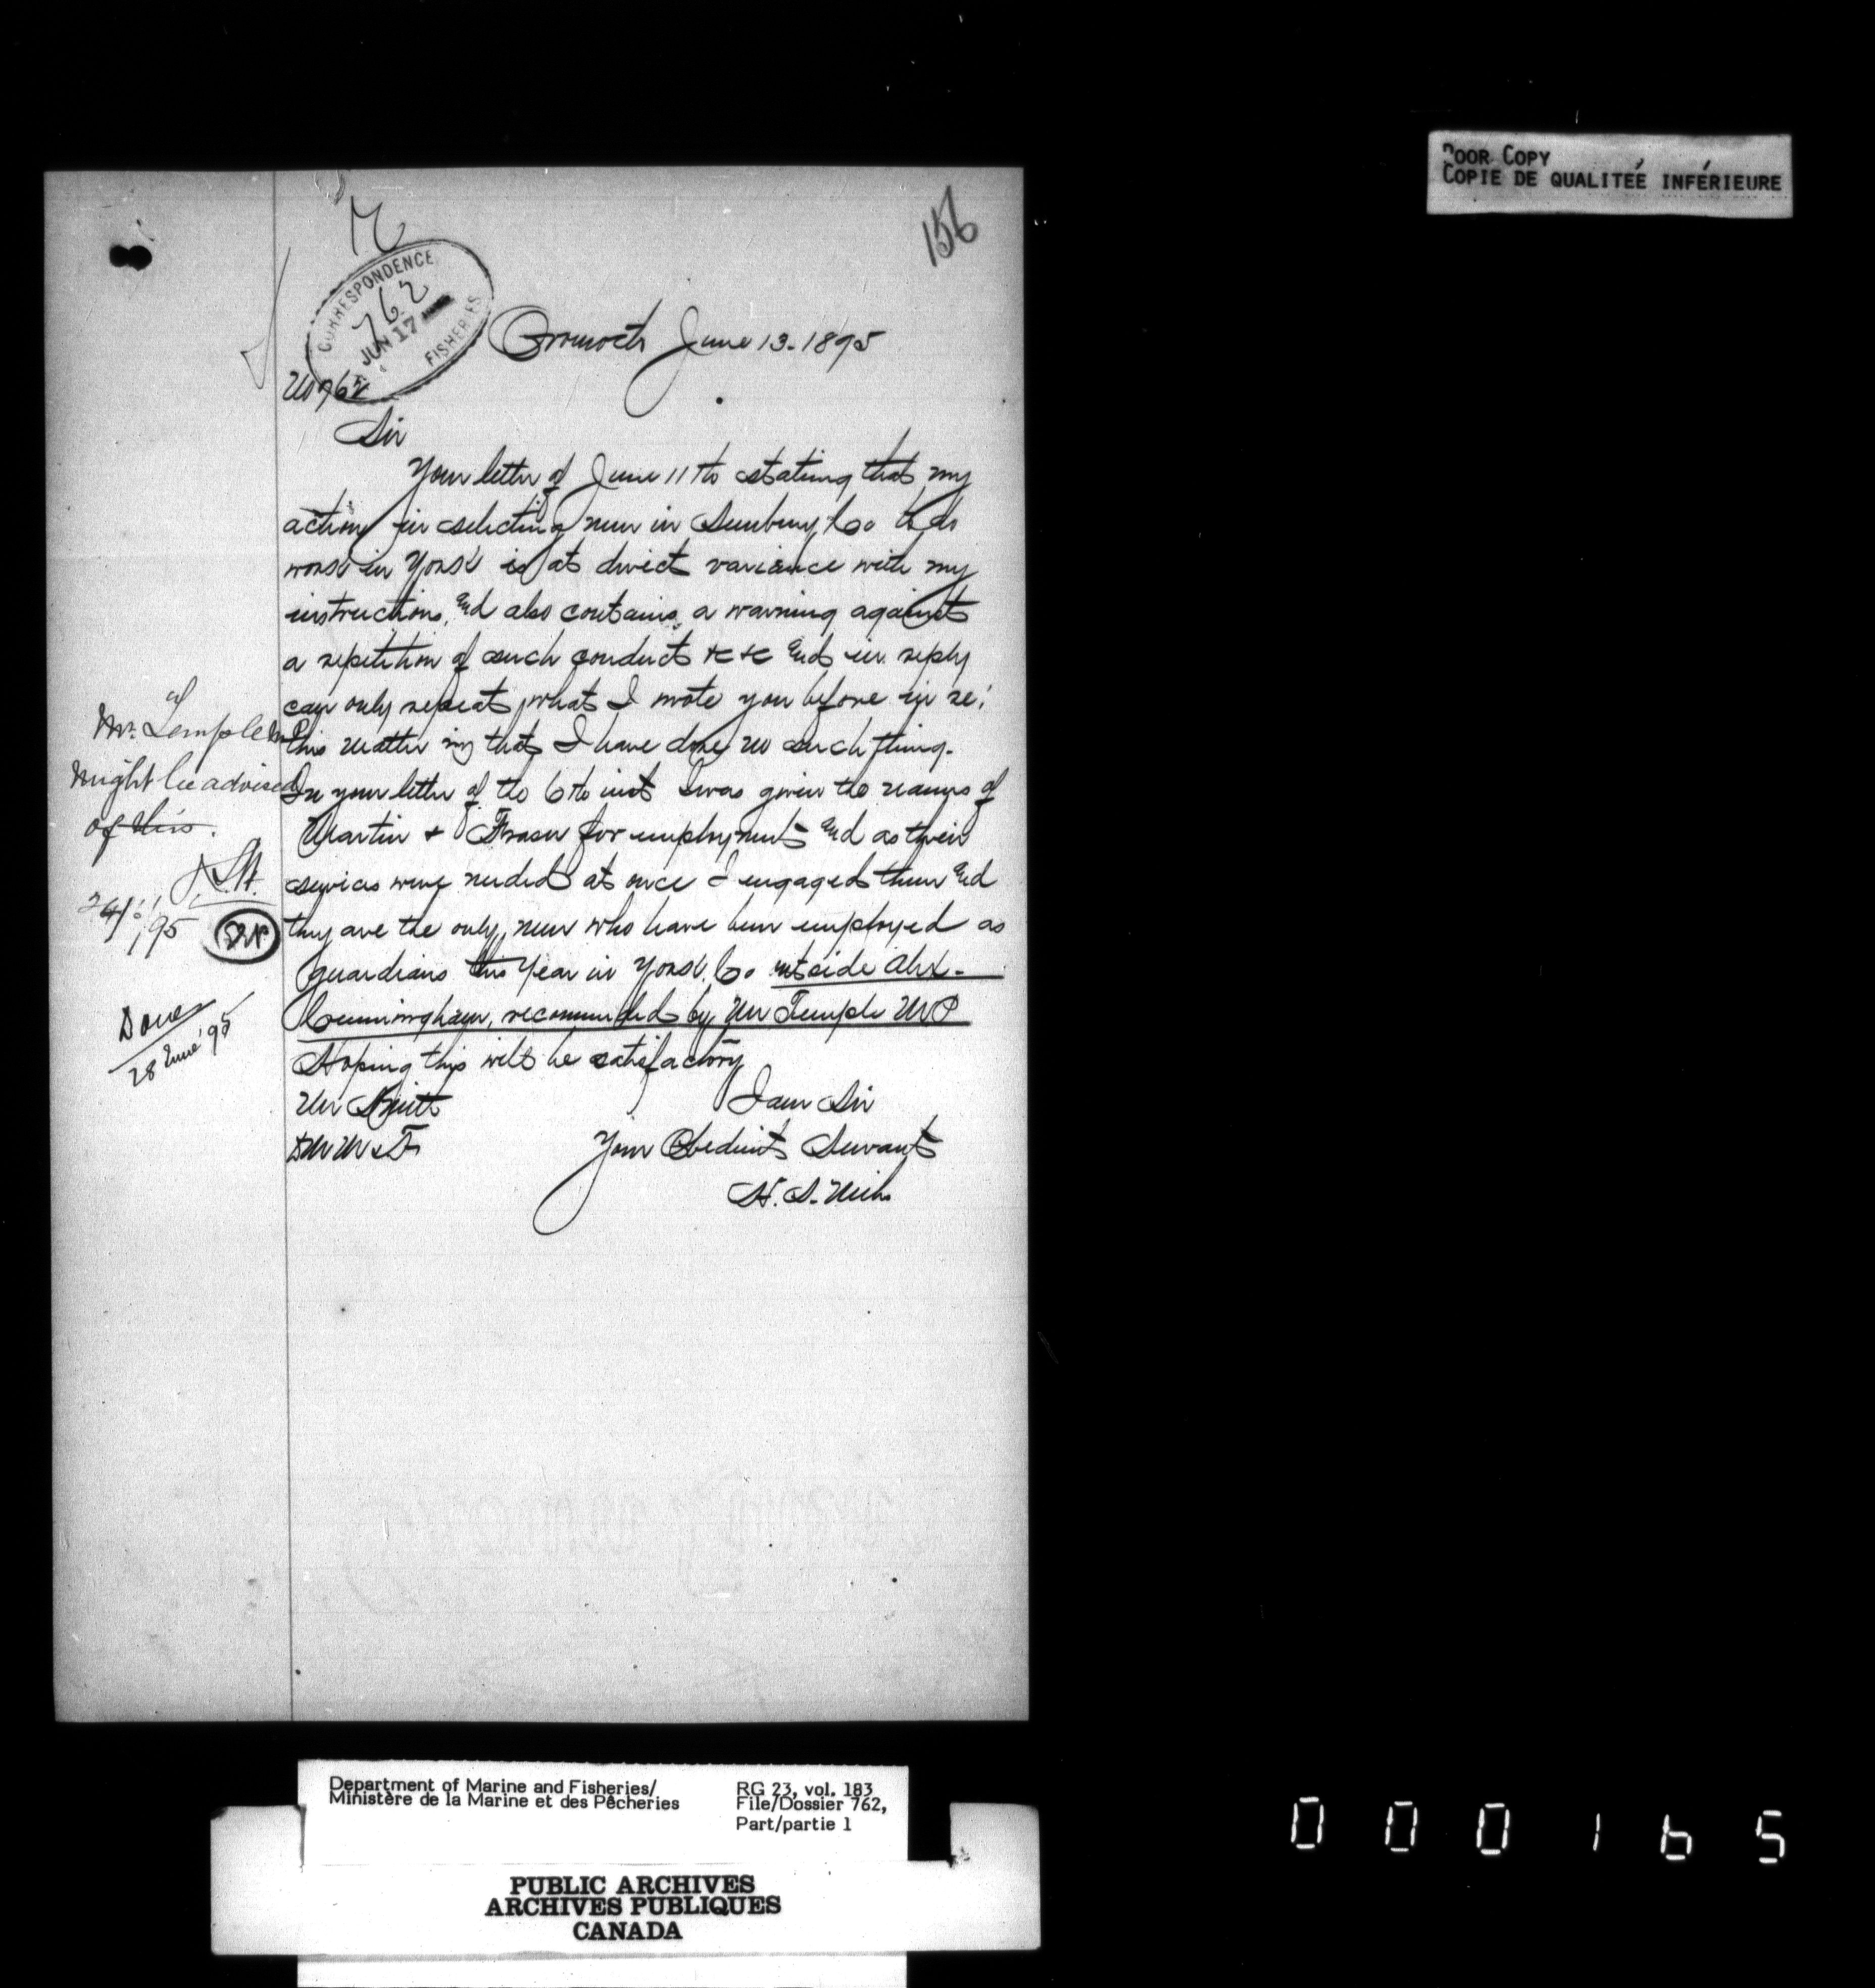 POOR COPY
COPIE DE QUALITÉE INFÉRIEURE
156
CORRESPONDENCE
762
JUN 17
FISHERIES
Oromocto June 13. 1895
No 762
Sir
Your letter of June 11th stating that my
action in selecting men in Sunbury Co to do
work in York is at direct variance with my
instructions, and also contains a warning against
a repetition of such conduct &c &c and in reply
can only repeat what I wrote you before in re:
this matter that I have done no such thing.
In your letter of the 6th inst I was given the names of
Martin & Fraser for employment and as their
services were needed at once I engaged them and
they are the only men who have been employed as
guardians this year in York Co outside Alex.
Cunningham, recommended by Mr Temple MP
Hoping this will be satisfactory
I am Sir
Mr Smith
Your Obedient Servant
D M M & F
H. S. Miles
Mr. Temple
might be advised
of this.
95
Done
28 June '95
Department of Marine and Fisheries/
Ministère de la Marine et des Pêcheries
RG 23, vol. 183
File/Dossier 762,
Part/partie 1
PUBLIC ARCHIVES
ARCHIVES PUBLIQUES
CANADA
000165